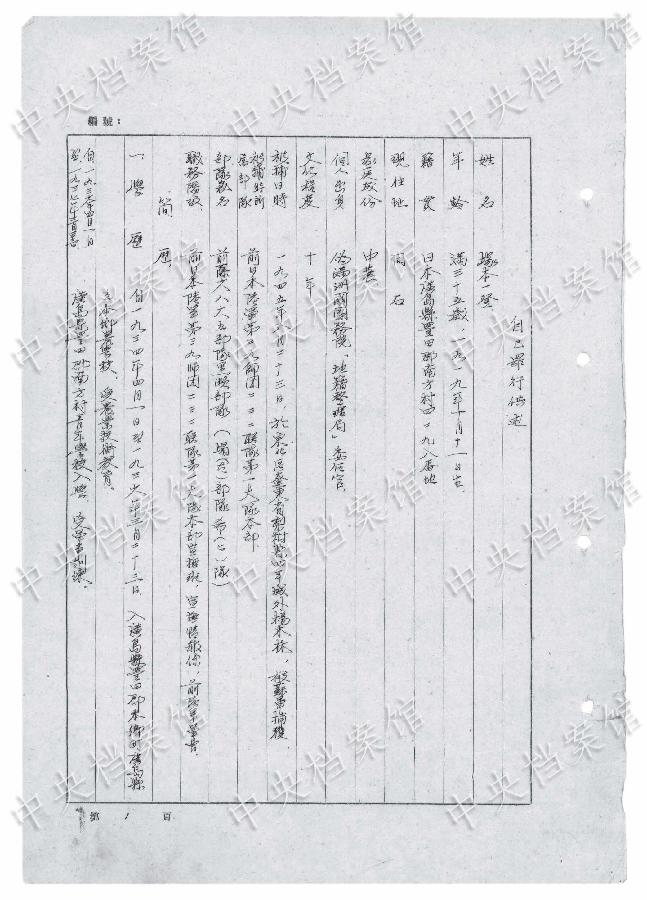 編號：
自己罪行供述
姓 名 塚本一登
年 齡 滿三十五歲，一九一九年十月十一日生
籍 貫 日本廣島縣豐田郡南方村四二九八番地
現住地 同右
家庭成份 中農
個人出身 偽滿洲國國務院「地籍整理局」委任官
文化程度 十年
被捕日時 一九四五年八月二十三日，於東北區遼東省 四平城外楊木林，被蘇軍捕獲
被捕時所屬部隊 前日本陸軍第三九師團二三二聯隊第一大隊本部
部隊私名 前藤六八六五部隊 部隊（ ）部隊 （ ）隊
職務階級 前日本陸軍第三九師團二三二聯隊第一大隊本部 ，宣 情報係，前陸軍軍曹
簡 歷
一 學 歷 自一九三四年四月一日至一九三六年三月二十三日，入廣島縣豐田郡本鄉町廣島縣
立本鄉農學校，受農業技術教育。
自一九三六年四月一日至一九三七年 廣島縣豐田郡南方村青年學校入學，受軍事訓練。
第 1 頁
中央档案馆